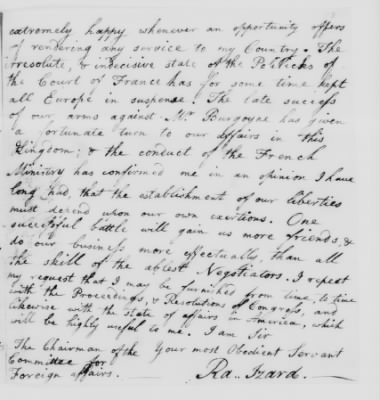 extremely happy whenever an opportunity offers
of rendering any service to my Country. The
irresolute, & indecisive state of the Politicks of
the Court of France has for some time kept
all Europe in suspence. The late success
of our arms against Mr. Burgoyne has given
a fortunate turn to our affairs in this
Kingdom; & the conduct of the French
Ministry has confirmed me in an opinion I have
long had, that the establishment of our liberties
must depend upon our own exertions. One
successful battle will gain us more friends, &
do our business more effectually, than all
the skill of the ablest Negotiators. I repeat
my request that I may be furnished from time, to time
with the Proceedings, & Resolutions of Congress, and
likewise with the state of affairs in America, which
will be highly useful to me. I am Sir
The Chairman of the Your most Obedient Servant
Committee for
Foreign affairs. Ra. Izard.